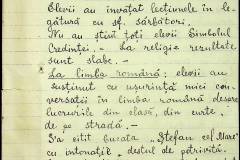 Elevii au învățat lecțiunile în le-
gătură cu sf. sărbători.
Nu au știut toți elevii Simbolul
Credinței. - La religie rezultate
sunt slabe. -
La limba română: elevii au
susținut cu ușurință mici con-
versații în limba română despre
lucrurile din clasă, din curte,
de pe stradă -
S'a citit bucata „Ștefan cel Mare"
cu intonație destul de potrivită.